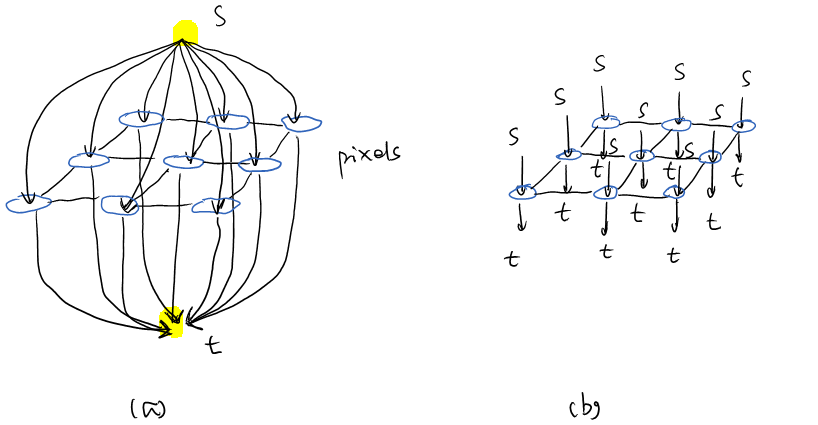 S
pixels
t
(a)
S S S
S S S
S S S
t t t
t t t
t t t
(b)